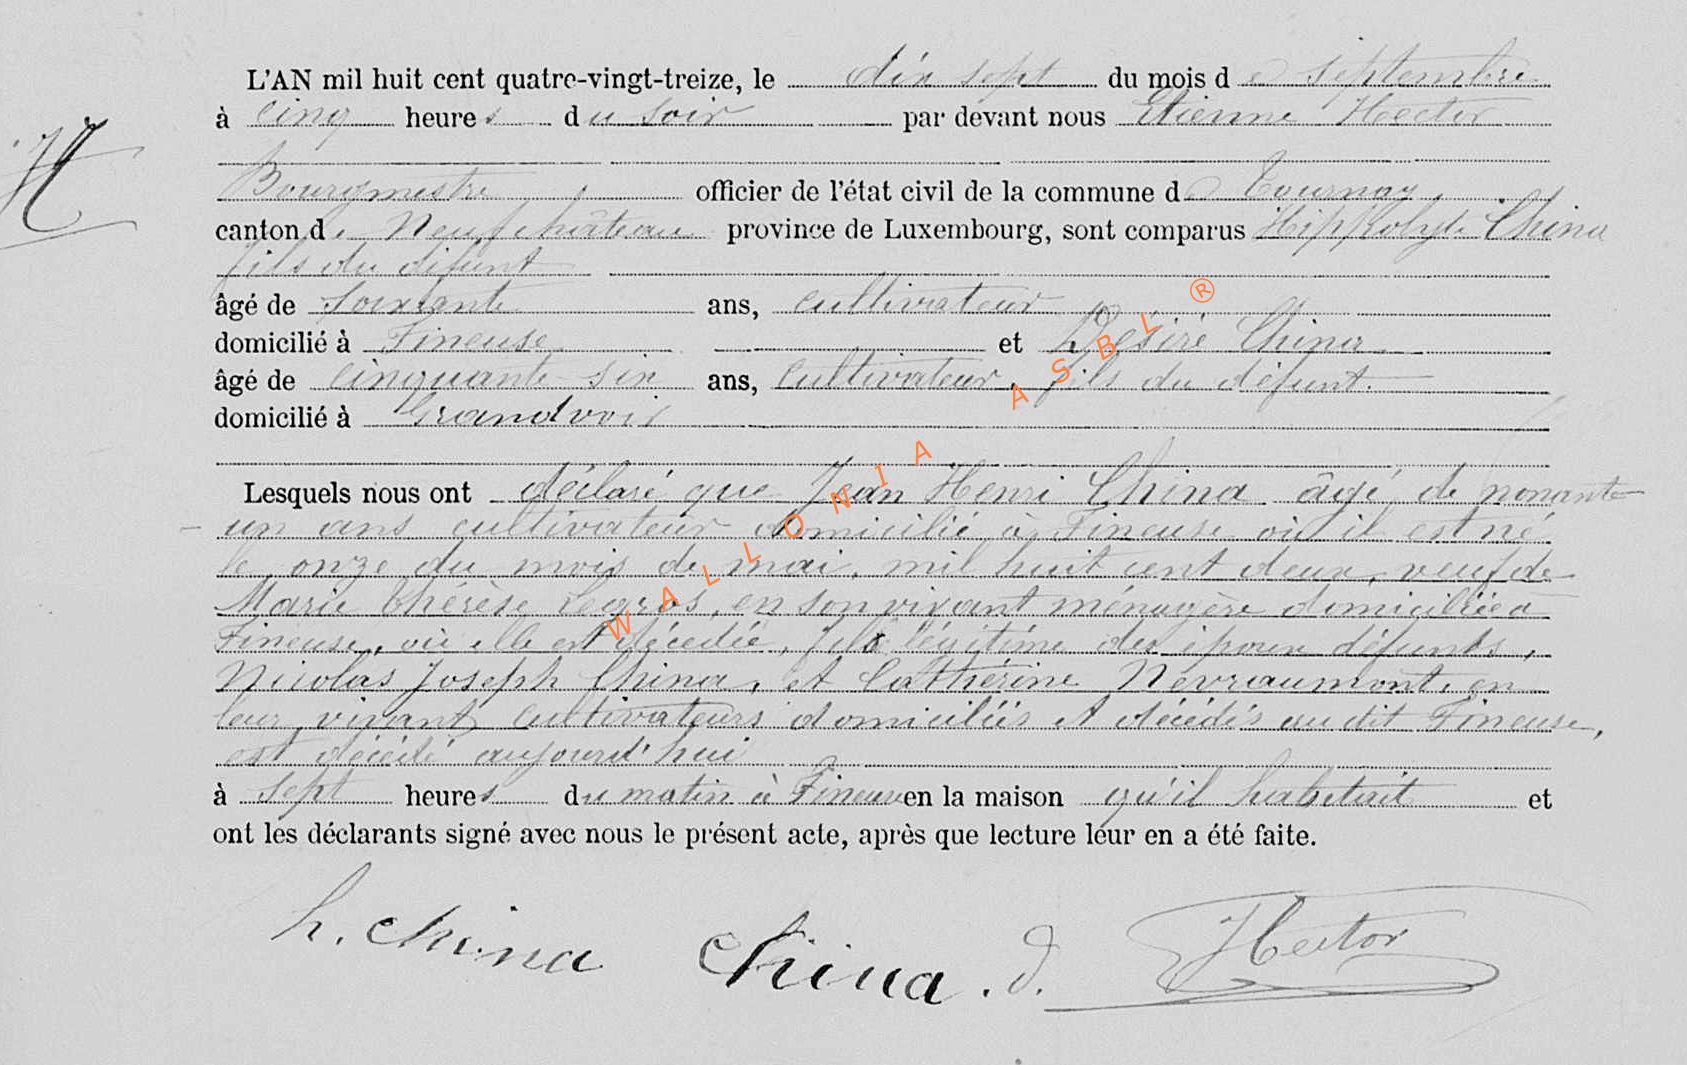 L'AN mil huit cent quatre-vingt-treize, le dix sept du mois de septembre
à cinq heures du soir par devant nous Etienne Hector
H
Bourgmestre officier de l'état civil de la commune de Tournay
canton de Neufchâteau province de Luxembourg, sont comparus Hippolyte China
fils du défunt
âgé de soixante ans, cultivateur
domicilié à Fineuse et Désiré China
âgé de cinquante six ans, cultivateur, fils du défunt.
domicilié à Grandvoir
Lesquels nous ont déclaré que Jean Henri China âgé de nonante
- un ans cultivateur domicilié à Fineuse où il est né
le onze du mois de mai, mil huit cent deux, veuf de
Marie Thérèse Legros, en son vivant ménagère domiciliée à
Fineuse, où elle est décédée, fils légitime des époux défunts,
Nicolas Joseph China, et Catherine Nevraumont, en
leur vivant cultivateurs domiciliés et décédés au dit Fineuse,
est décédé aujourd'hui
à sept heures du matin à Fineuse en la maison qu'il habitait et
ont les déclarants signé avec nous le présent acte, après que lecture leur en a été faite.
h. China China . d. Hector
WALLONIA ASBL ®